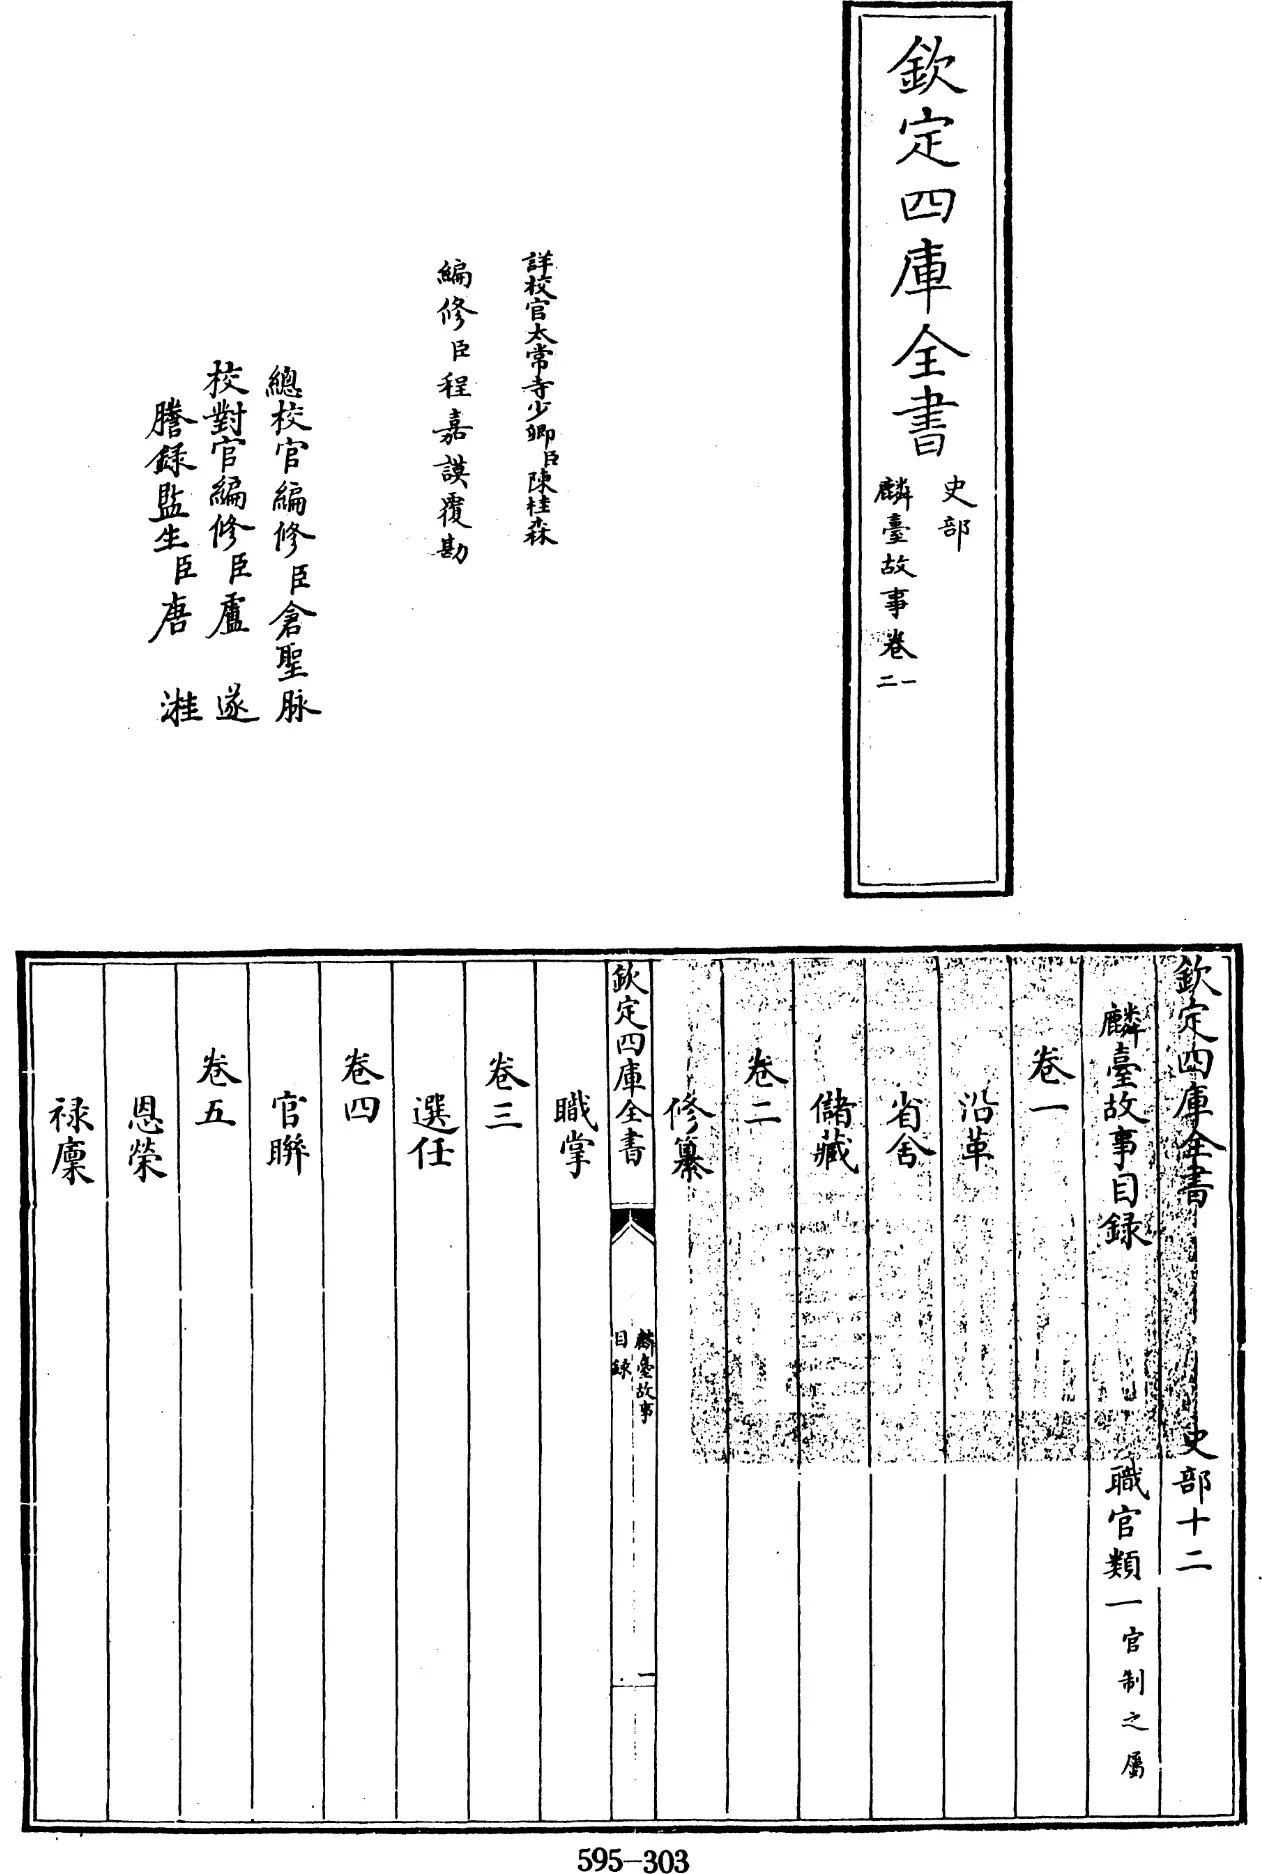 欽定四庫全書
史部
麟臺故事卷一二
詳校官太常寺少卿臣陳桂森
編修臣程嘉謨覆勘
總校官編修臣倉聖脉
校對官編修臣盧遂
謄録監生臣唐溎
欽定四庫全書 史部十二
麟臺故事目録 職官類一官制之屬
卷一
沿革
省舍
儲藏
卷二
修纂
欽定四庫全書
麟臺故事
目録
一
職掌
卷三
選任
卷四
官聯
卷五
恩榮
禄廩
595-303